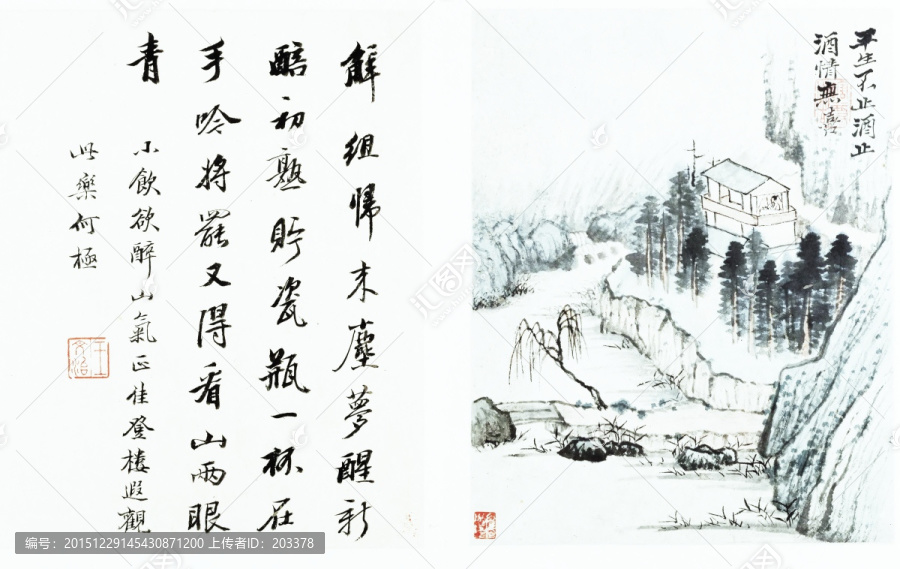 平生不止酒止
酒情無喜
解組歸来塵夢醒新
醅初熟貯瓷瓶一杯在
手吟將罷又得看山兩眼
青
小飲欲醉山氣正佳登樓遐觀
此樂何極
王文治
编号:20151229145430871200 上传者ID:203378